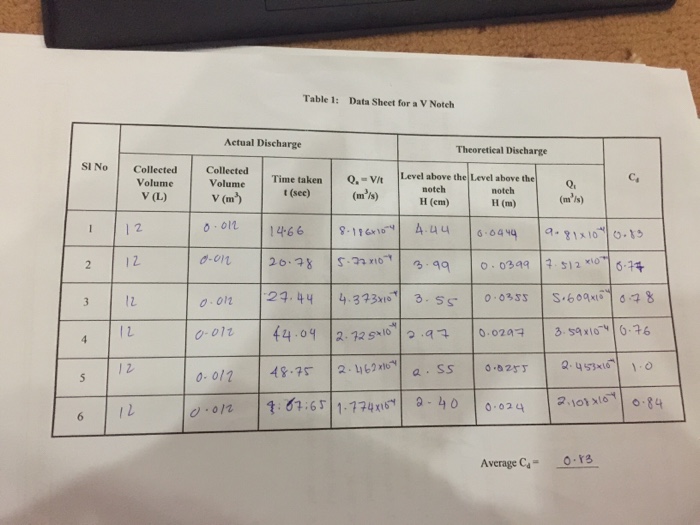 Table 1: Data Sheet for a V Notch
Sl No
Actual Discharge
Theoretical Discharge
Collected Volume V (L)
Collected Volume V (m³)
Time taken t (sec)
Qₐ = V/t (m³/s)
Level above the notch H (cm)
Level above the notch H (m)
Qₜ (m³/s)
C_d
1 12 0.012 14.66 8.186x10⁻⁴ 4.44 0.0444 9.81x10⁻⁴ 0.83
2 12 0.012 20.78 5.77x10⁻⁴ 3.99 0.0399 7.512x10⁻⁴ 0.77
3 12 0.012 27.44 4.373x10⁻⁴ 3.55 0.0355 5.609x10⁻⁴ 0.78
4 12 0.012 44.04 2.725x10⁻⁴ 2.97 0.0297 3.59x10⁻⁴ 0.76
5 12 0.012 48.75 2.462x10⁻⁴ 2.55 0.0255 2.453x10⁻⁴ 1.0
6 12 0.012 1.774x10⁻⁴ 2.40 0.024 2.108x10⁻⁴ 0.84
Average C_d = 0.83